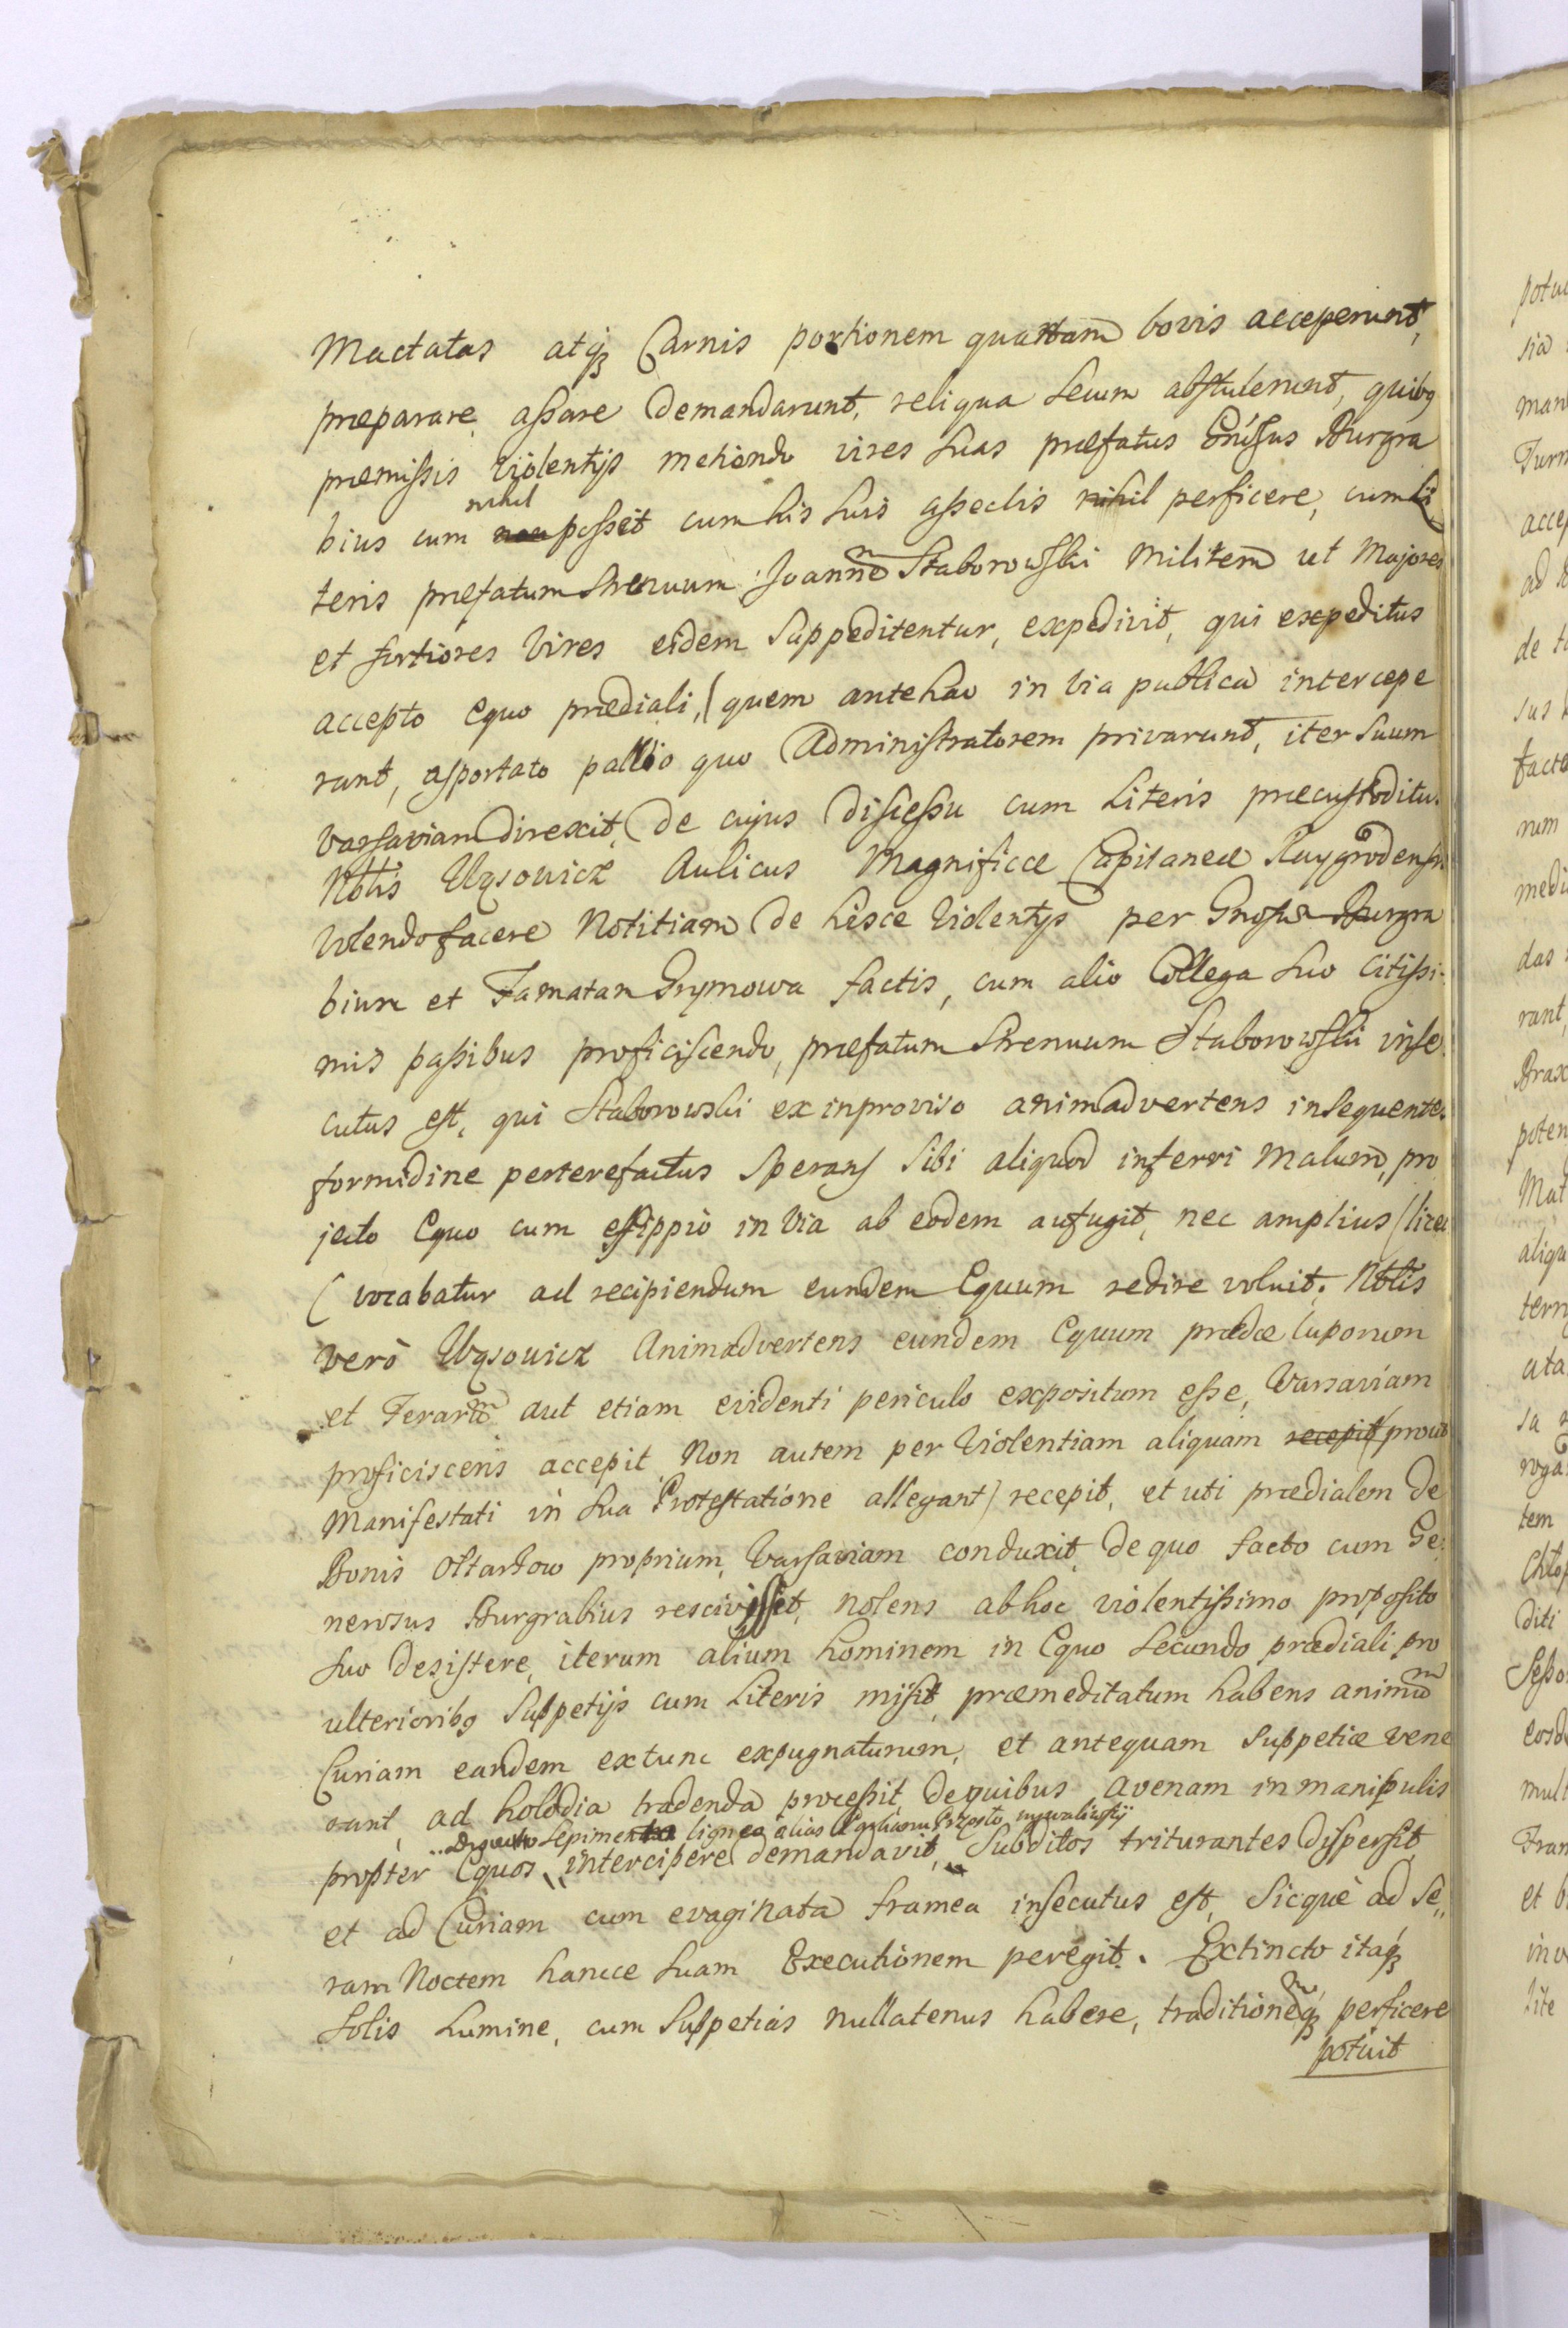 Mactatas atq₃ Carnis portionem quartam bovis acceperunt,
præparare, assare demandarunt, reliqua secum abstulerunt, quibꝯ
præmissis violentijs metiendo vires suas præfatus Gnrsus Burgra
bius cum nihil posset cum his suis asseclis nihil perficere, cum li
teris præfatum Strenuum Joannem Staborowski Militem ut Majores
et fortiores vires eidem suppeditentur, expedivit, qui expeditus
accepto Equo prædiali, (quem antehac in via publica intercepe
rant, asportato pallio quo Administratorem privarunt, iter suum
Varsaviam direxit, de cujus discessu cum Literis præcustoditu.
Nblis Wąsowicz Aulicus Magnificæ Capitaneæ Raygrodensis
volendo facere Notitiam de hisce violentijs per Gnosum Burgra
bium et Famatam Grymowa factis, cum alio Collega suo citissi-
mis passibus proficiscendo, præfatum Strenuum Staborowski inse
cutus est, qui Staborowski ex inproviso animadvertens insequentes
formidine perterefactus sperans sibi aliquod inferri malum, pro
jecto Equo cum effippio in via ab eodem aufugit, nec amplius (licet
(vocabatur ad recipiendum eundem Equum redire voluit. Nblis
verò Wąsowicz Animadvertens eundem Equum prædæ luporum
et Ferarum aut etiam evidenti periculo expositum esse, Varsaviam
proficiscens accepit Non autem per violentiam aliquam recepit (prout
Manifestati in sua Protestatione allegant) recepit, et uti prædialem de
Bonis Oltarzow proprium, Varsaviam conduxit, de quo facto cum Ge-
nerosus Burgrabius rescivisset, nolens ab hoc violentissimo proposito
suo desistere, iterum alium hominem in Equo secundo prædiali pro
ulterioribꝯ suppetijs cum Literis misit, præmeditatum habens animum
Curiam eandem extunc expugnaturum, et antequam suppetiæ vene
rant, ad holodia tradenda processit, de quibus avenam in manipulis
Sepimenta lignea alias
propter Equos intercipere demandavit, Subditos triturantes dispersit,
et ad Curiam cum evaginata framea insecutus est, sicque ad se,,
ram Noctem hancce suam Executionem peregit. Extincto itaq₃
Solis Lumine, cum suppetias nullatenus habere, traditionemq₃ perficere
potuit